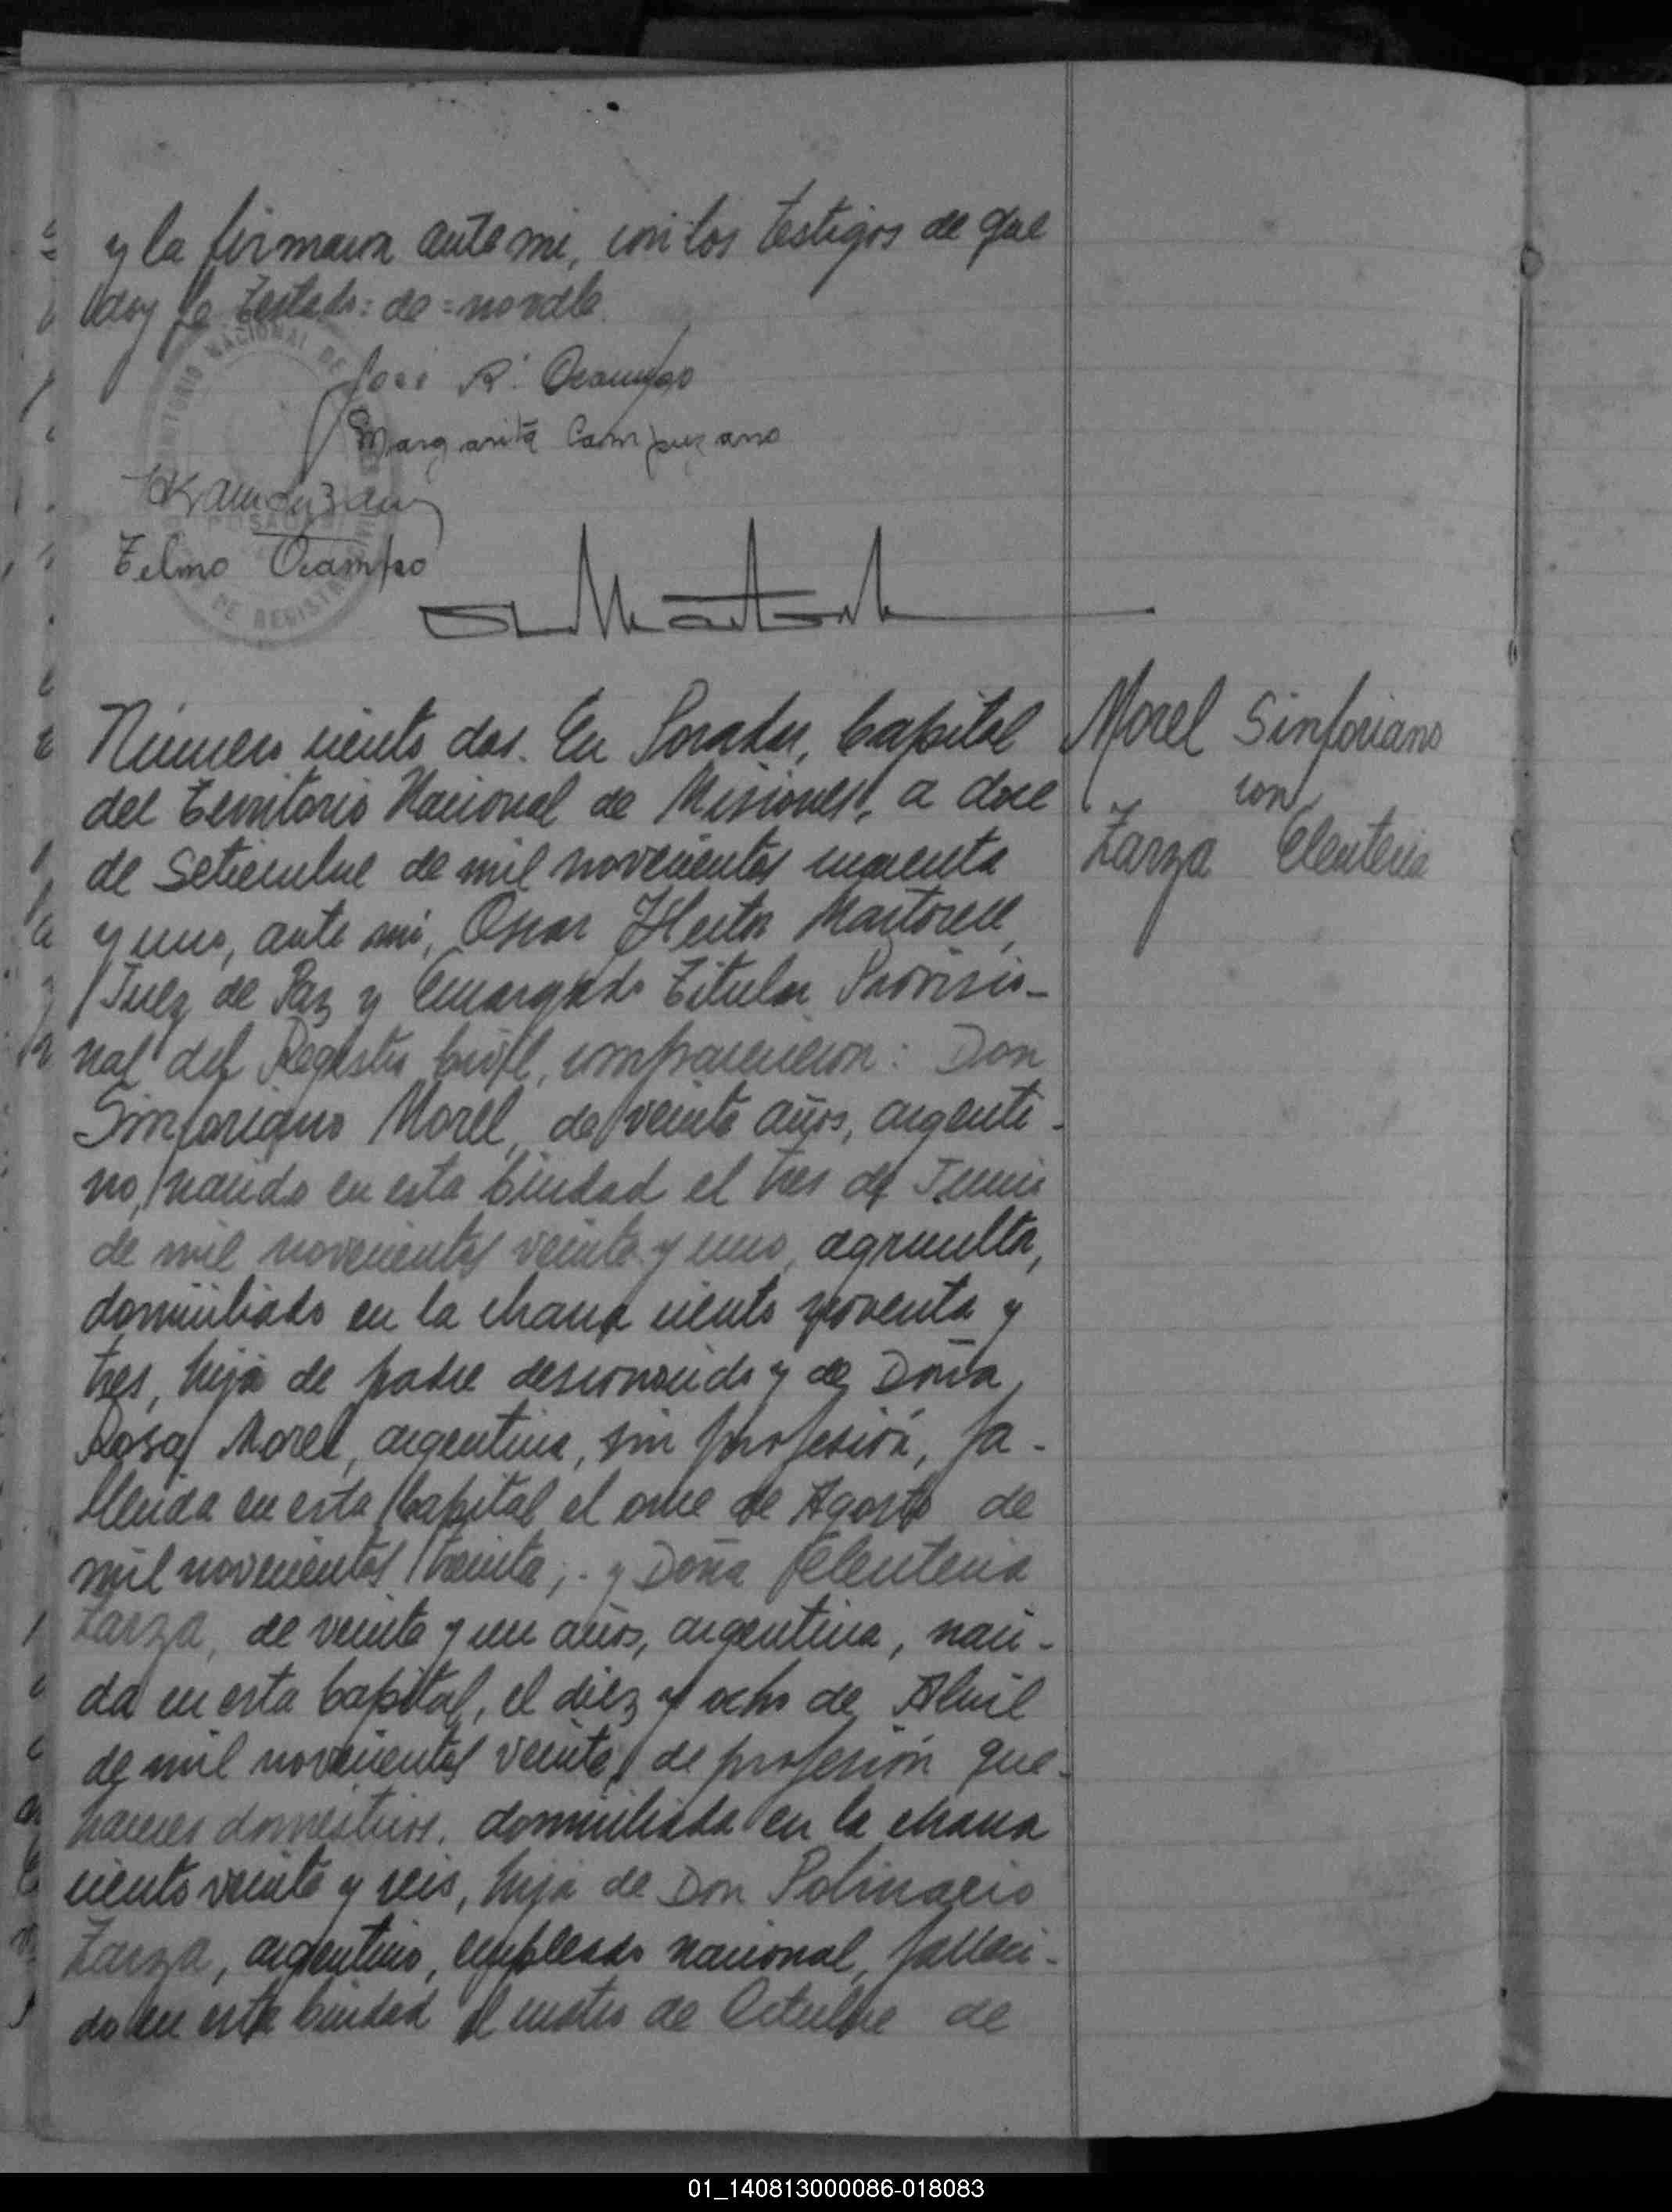 y la firmaron ante mi, con los testigos de que
doy fe Testado: de = no vale.
José R. Ocampo
Margarita Campuzano
Telmo Ocampo
NACIONAL DE
POSADAS
DE REGISTRO
Número ciento dos. En Posadas, Capital
del Territorio Nacional de Misiones, a doce
de Setiembre de mil novecientos cuarenta
y uno, ante mi, Oscar Hector Martorell,
Juez de Paz y Encargado Titular Provisio-
nal del Registro Civil, comparecieron: Don
Sinforiano Morel, de veinte años, argenti-
no, nacido en esta Ciudad el tres de Junio
de mil novecientos veinte y uno, agricultor,
domiciliado en la chacra ciento noventa y
tres, hijo de padre desconocido y de Doña
Rosa Morel, argentina, sin profesión, fa-
llecida en esta Capital el once de Agosto de
mil novecientos treinta; y Doña Eleuteria
Zarza, de veinte y un años, argentina, naci-
da en esta Capital, el diez y ocho de Abril
de mil novecientos veinte, de profesión que-
haceres domésticos, domiciliada en la chacra
ciento veinte y seis, hija de Don Polinario
Zarza, argentino, empleado nacional, falleci-
do en esta Ciudad el cuatro de Octubre de
Morel Sinforiano
con
Zarza Eleuteria
01_140813000086-018083